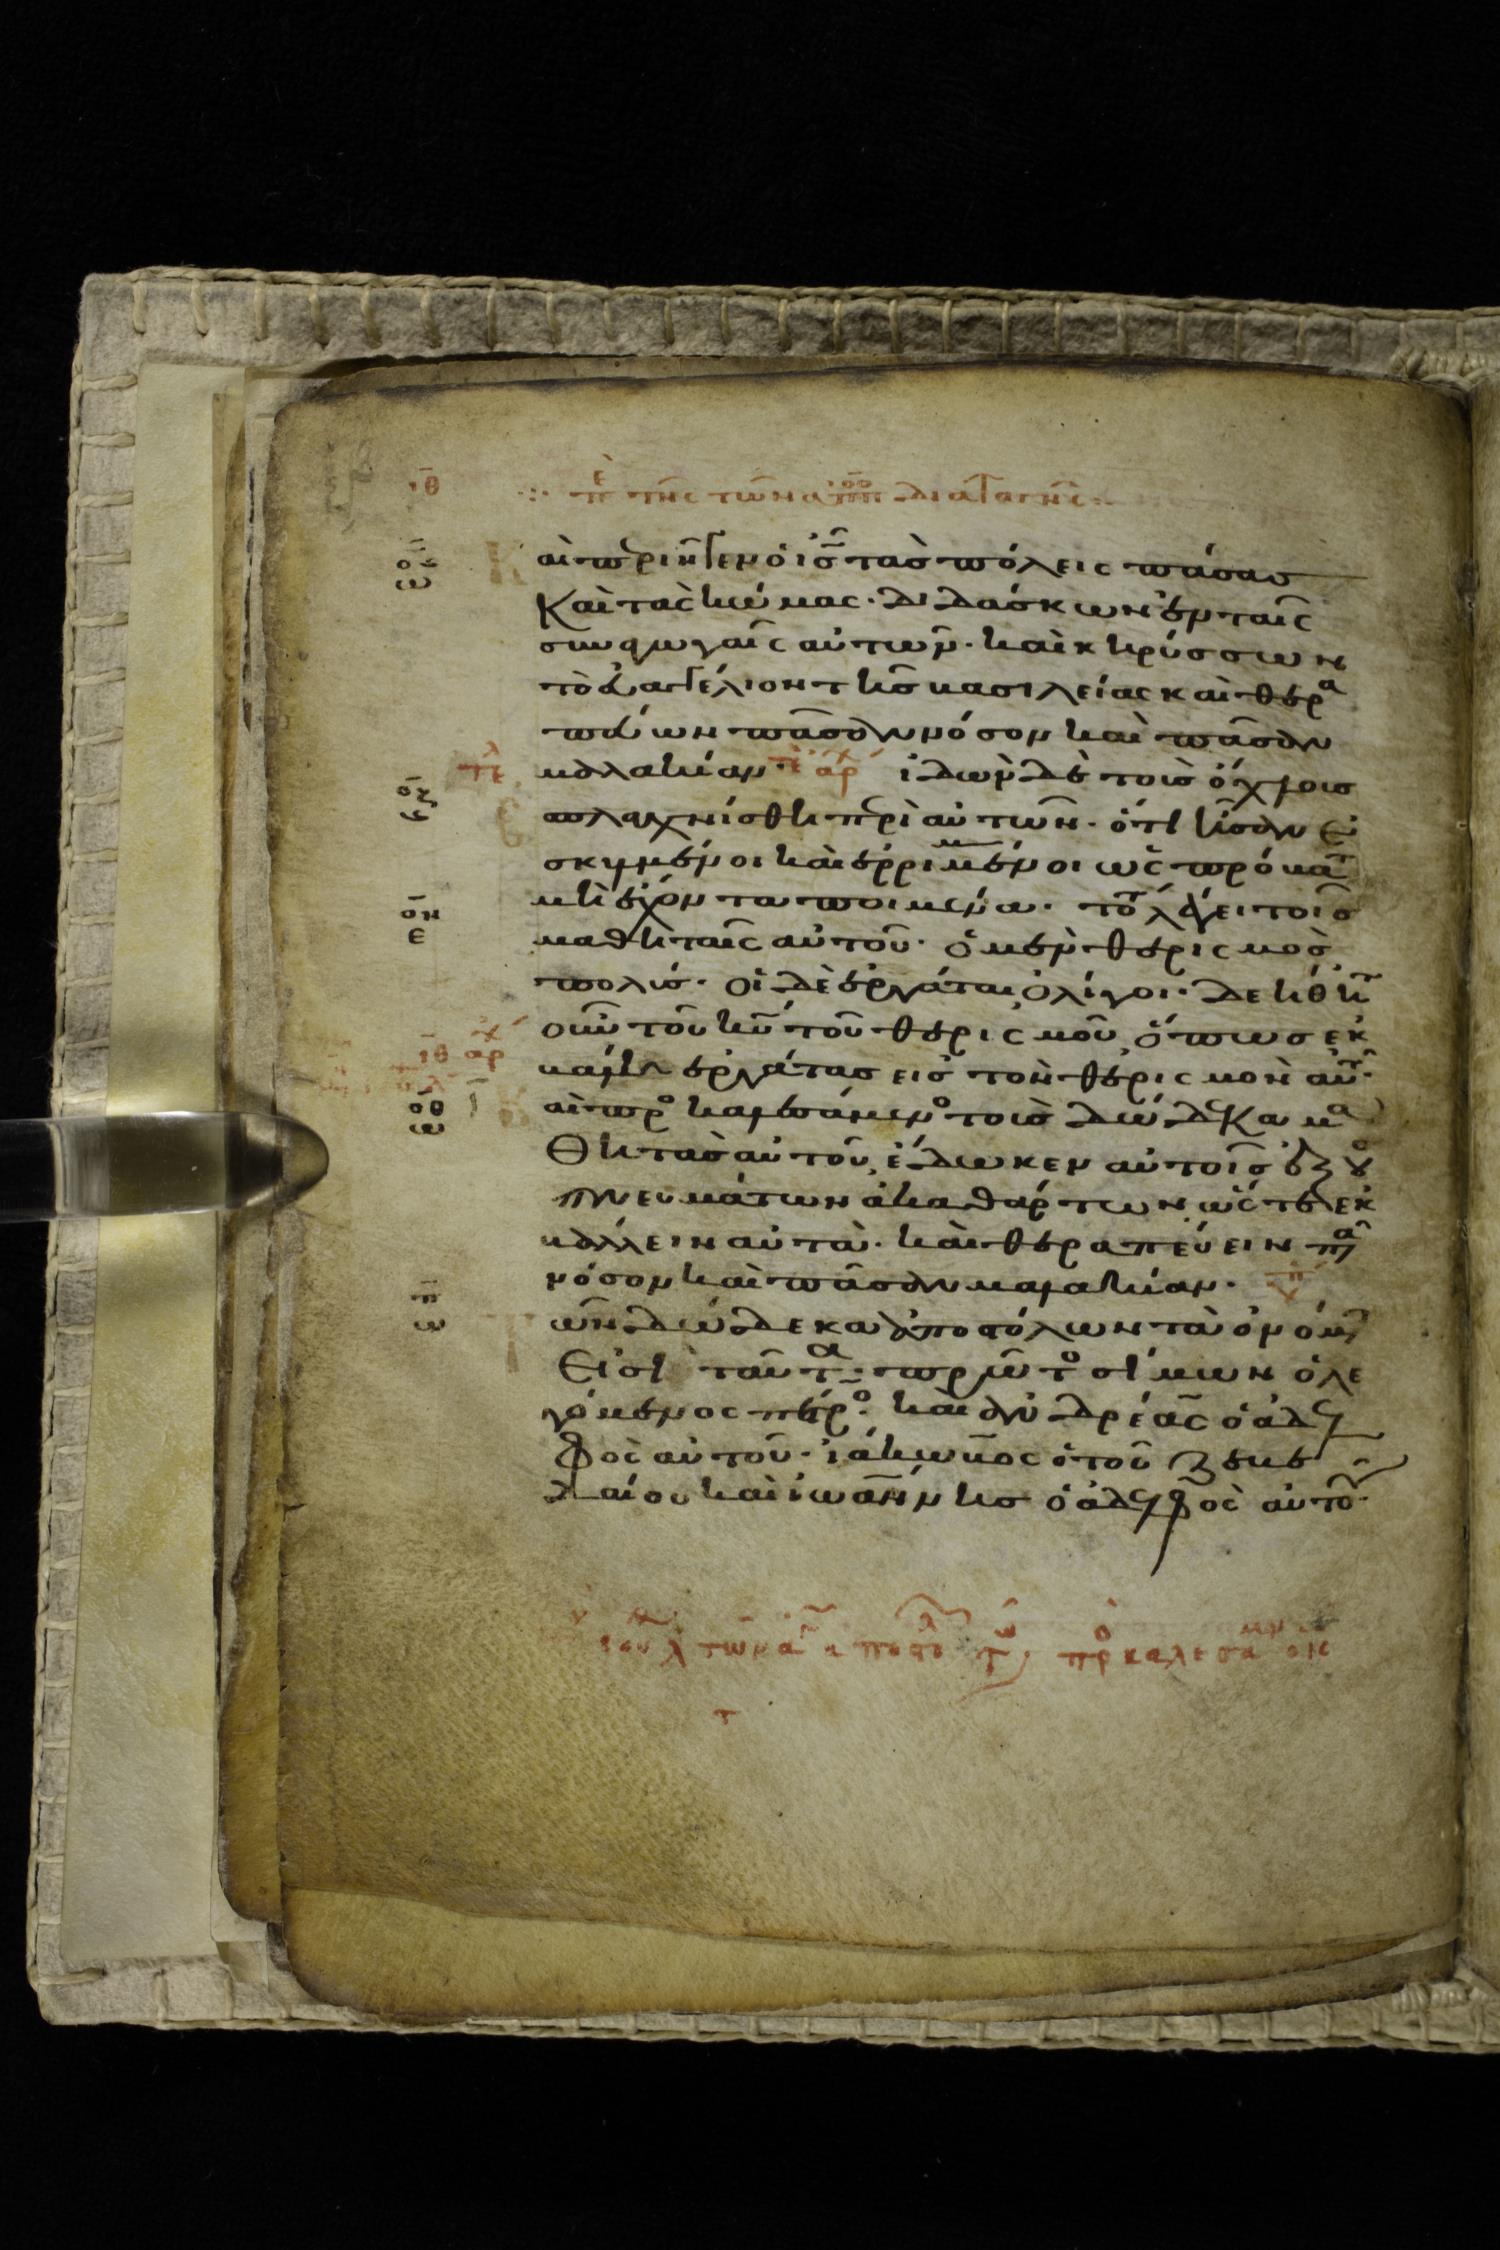 ιθ περὶ τῆς τῶν ἀπο διαταγῆς
αι περιῆγεν ὁ ις τὰς πόλεις πάσας
καὶ τὰς κώμας· διδάσκων ἐν ταῖς
συναγωγαῖς αὐτῶν· καὶ κηρύσσων
τὸ εὐαγγέλιον τῆς βασιλείας καὶ θερα
πεύων πᾶσαν νόσον καὶ πᾶσαν
μαλακίαν· τε ἀρχ ἰδὼν δὲ τοὺς ὄχλους
ἐσπλαγχνίσθη περὶ αὐτῶν· ὅτι ἦσαν ἐ
σκυμένοι καὶ ἐρριμμένοι ὡς πρόβατα
μὴ ἔχοντα ποιμένα· τότε λέγει τοῖς
μαθηταῖς αὐτοῦ· ὁ μὲν θερισμὸς
πολύς· οἱ δὲ ἐργάται ὀλίγοι· δεήθητε
οὖν τοῦ κυ τοῦ θερισμοῦ, ὅπως ἐκ
βάλῃ ἐργάτας εἰς τὸν θερισμὸν αὐτοῦ·
αι προσκαλεσάμενος τοὺς δώδεκα μα
θητὰς αὐτοῦ, ἔδωκεν αὐτοῖς ἐξου
πνευμάτων ἀκαθάρτων, ὥστε ἐκ
βάλλειν αὐτά· καὶ θεραπεύειν πᾶ
νόσον καὶ πᾶσαν μαλακίαν·
ῶν δώδεκα ἀποστόλων τὰ ὀνόματ
εἰσὶ ταῦτα· πρῶτος σίμων ὁ λε
γόμενος πέτρος· καὶ ἀνδρέας ὁ ἀδελ
φὸς αὐτοῦ· ἰάκωβος ὁ τοῦ ζεβε
δαίου καὶ ἰωάννης ὁ ἀδελφὸς αὐτοῦ·